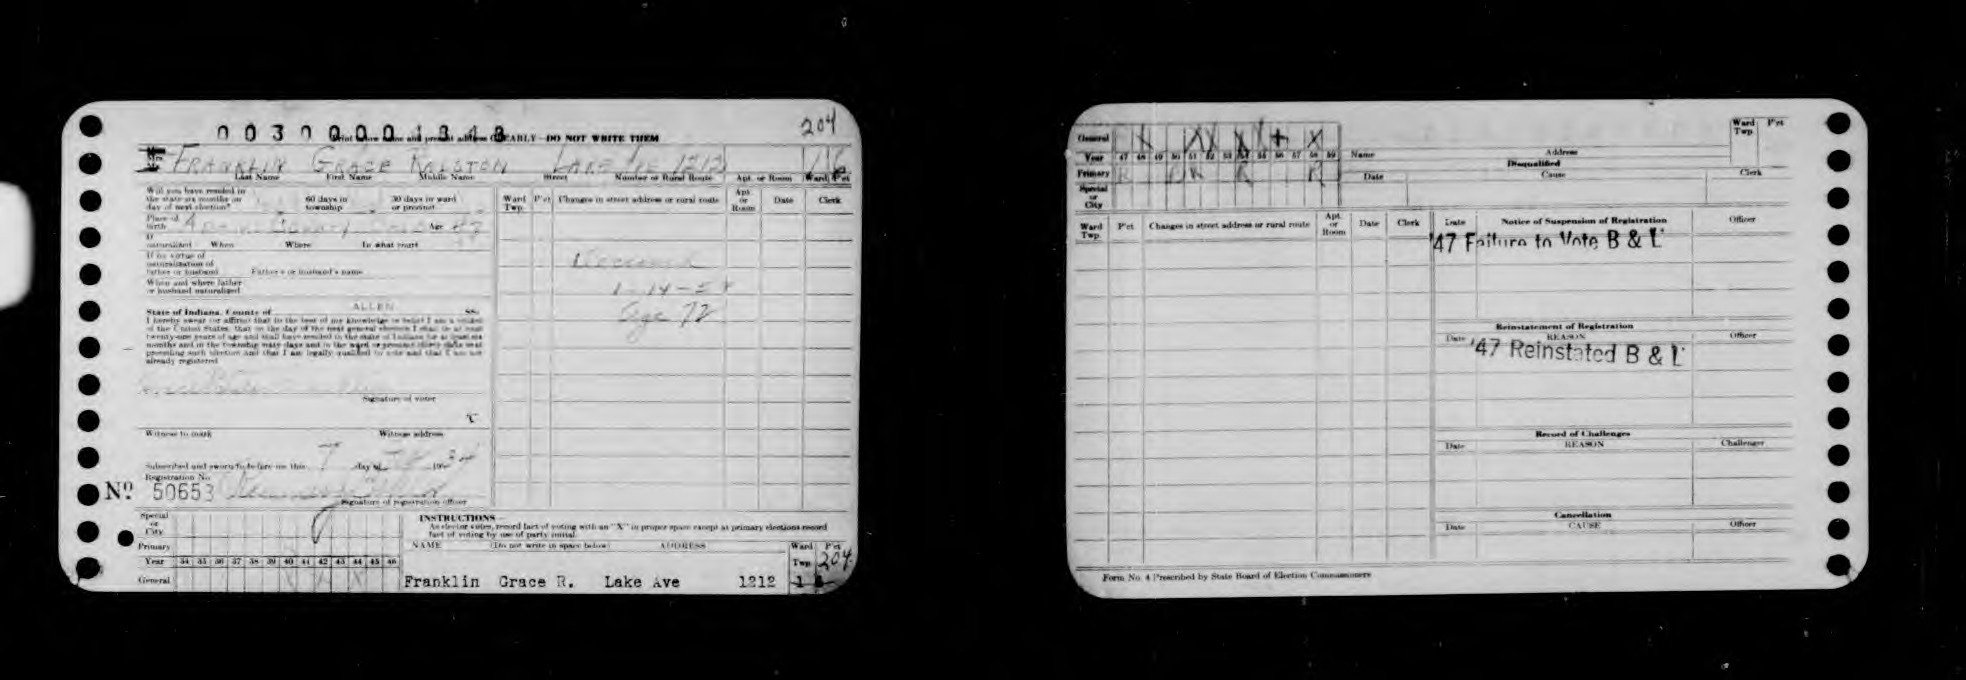 204
0030000 1343
Print above name and present address CLEARLY—DO NOT WRITE THEM
Mrs. FRANKLIN GRACE RALSTON LAKE AVE 1212 1 6
Last Name First Name Middle Name Street Number or Rural Route Apt. or Room Ward P'ct
Will you have resided in the state six months on day of next election? 60 days in township 30 days in ward or precinct
Place of birth Age
If naturalized When Where In what court
If by virtue of naturalization of father or husband Father's or husband's name
When and where father or husband naturalized
State of Indiana, County of ALLEN ss:
I hereby swear (or affirm) that to the best of my knowledge or belief I am a citizen
of the United States, that on the day of the next general election I shall be at least
twenty-one years of age and shall have resided in the state of Indiana for at least six
months and in the township sixty days and in the ward or precinct thirty days next
preceding such election and that I am legally qualified to vote and that I am not
already registered
Signature of voter
Witness to mark Witness address
Subscribed and sworn to before me this 7 day of 19
Registration No.
Nº 50653
Signature of registration officer
Ward Twp. P'ct Changes in street address or rural route Apt. or Room Date Clerk
Deceased
1-14-58
Age 72
Special or City
Primary
Year 34 35 36 37 38 39 40 41 42 43 44 45 46
General X X X
INSTRUCTIONS—
As elector votes, record fact of voting with an "X" in proper space except at primary elections record
fact of voting by use of party initial.
NAME (Do not write in space below) ADDRESS Ward Twp. P'ct
204
Franklin Grace R. Lake Ave 1212 1
General X X X X X + X
Year 47 48 49 50 51 52 53 54 55 56 57 58 59
Primary R R R R R
Special or City
Name Address
Disqualified
Date Cause Clerk
Ward Twp. P'ct
Ward Twp. P'ct Changes in street address or rural route Apt. or Room Date Clerk
Date Notice of Suspension of Registration Officer
'47 Failure to Vote B & L
Reinstatement of Registration
Date REASON Officer
'47 Reinstated B & L
Record of Challenges
Date REASON Challenger
Cancellation
Date CAUSE Officer
Form No. 4 Prescribed by State Board of Election Commissioners